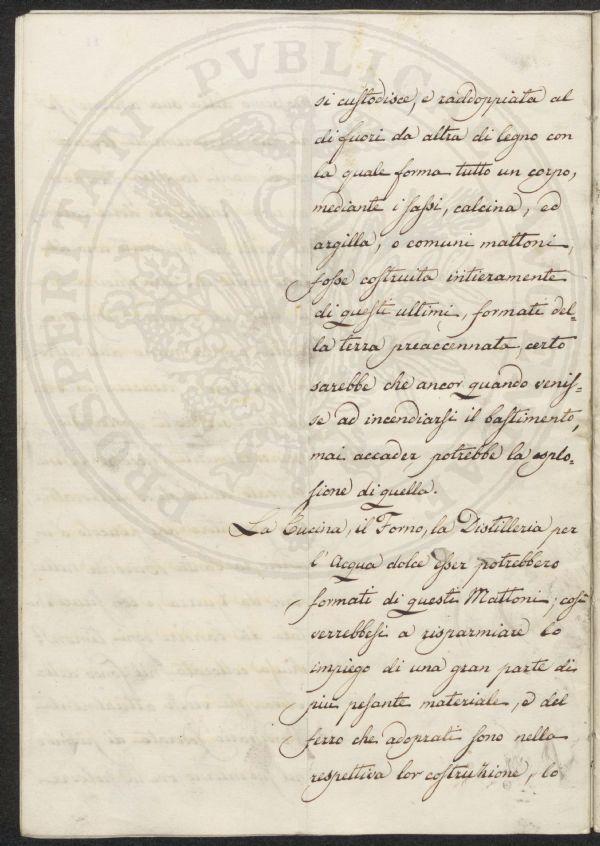 si custodisce, e raddoppiata al
di fuori da altra di legno con
la quale forma tutto un corpo,
mediante i sassi, calcina, ed
argilla, o comuni mattoni,
fosse costruita intieramente
di questi ultimi, formati del=
la terra preaccennata, certo
sarebbe che ancor quando venis=
se ad incendiarsi il bastimento,
mai accader potrebbe la esplo=
sione di quella.
La Cucina, il Forno, la Distilleria per
l' Acqua dolce esser potrebbero
formati di questi Mattoni; così
verrebbesi a risparmiare lo
impiego di una gran parte di
più pesante materiale, e del
ferro che adoprati sono nella
respettiva lor costruzione, lo
PROSPERITATI PVBLICAE